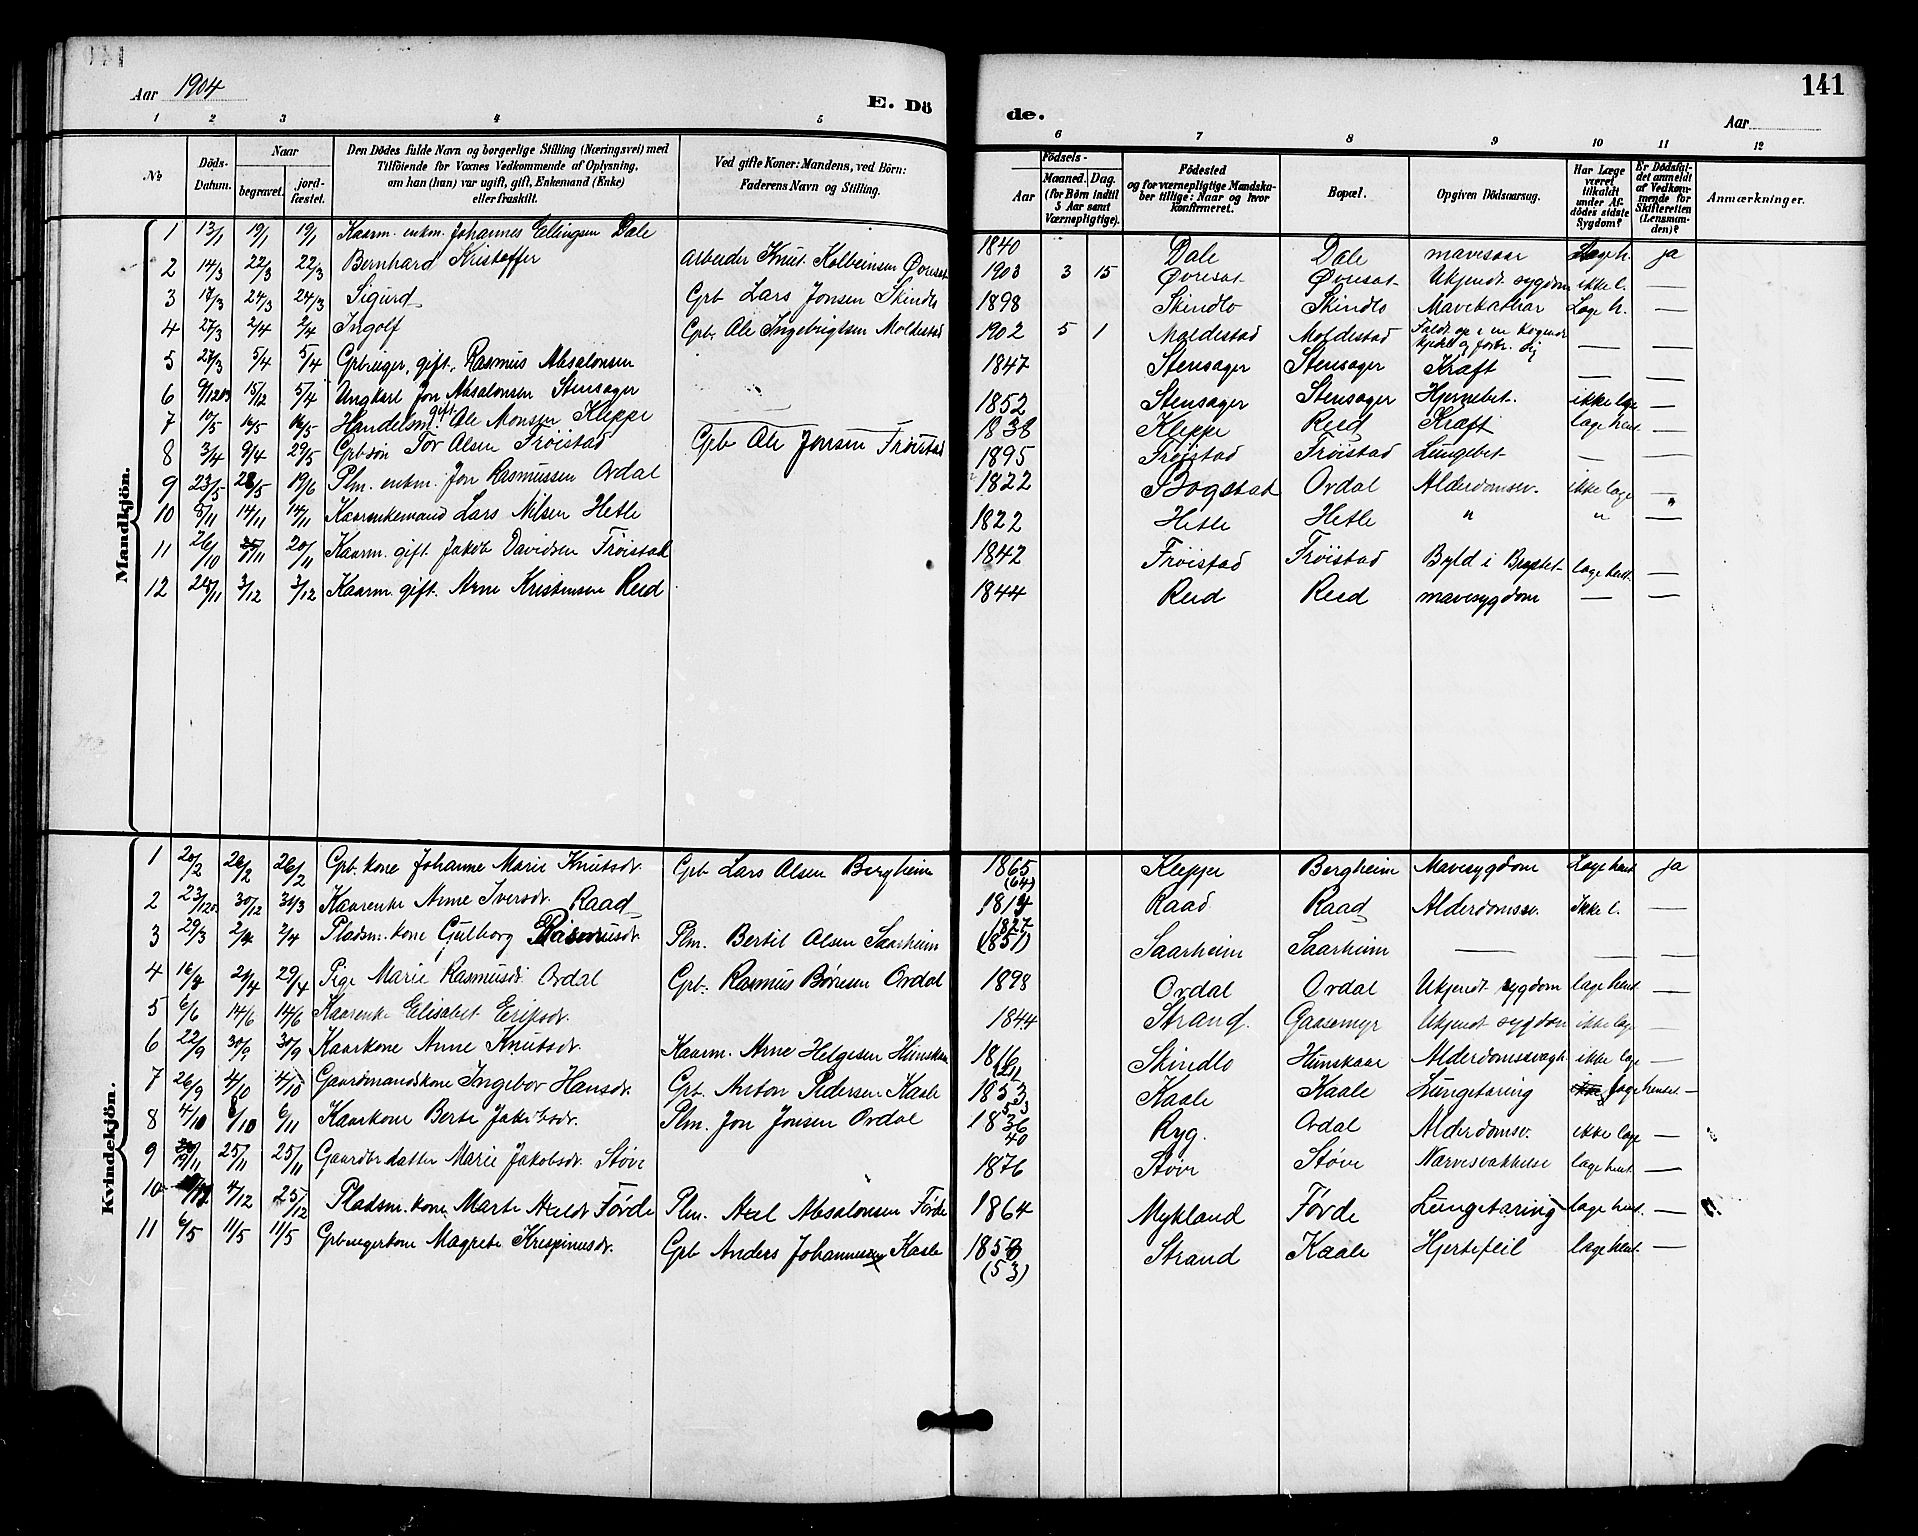 Aar 1904
E. Dö
de.
141
Aar
1 2 3 4 5 6 7 8 9 10 11 12
No
Döds-Datum.
Naar
begravet.
jordfæstet.
Den Dödes fulde Navn og borgerlige Stilling (Næringsvei) med
Tilföiende for Voxnes Vedkommende af Oplysning,
om han (hun) var ugift, gift, Enkemand (Enke)
eller fraskilt.
Ved gifte Koner: Mandens, ved Börn:
Faderens Navn og Stilling.
Födsels-
Aar
Maaned. Dag.
(for Börn indtil
5 Aar samt
Værnepligtige).
Födested
og for værnepligtige Mandska-
ber tillige: Naar og hvor
konfirmeret.
Bopæl.
Opgiven Dödsaarsag.
Har Læge
været
tilkaldt
under Af-
dödes sidste
Sygdom?
Er Dödsfal-
det anmeldt
af Vedkom-
mende for
Skifteretten
(Lensman-
den)?
Anmærkninger.
Mandkjön.
1 13/1 19/1 19/1 Kaarm. enkm. Johannes Ellingsen Dale 1840 Dale Dale mavesaar Læge h. ja
2 14/3 22/3 22/3 Bernhard Kristoffer Arbeider Knut Kolbeinsen Øvreset 1903 3 15 Øvreset Øvreset Ukjendt sygdom ikke l. —
3 17/3 24/3 24/3 Sigurd Grb Lars Jonsen Skindlo 1898 Skindlo Skindlo Mavekathar Læge h. —
4 27/3 2/4 2/4 Ingolf Grb. Ole Ingebrigtsen Moldestad 1902 5 1 Moldestad Moldestad Faldt op i en kogende kjedel og forbr. sig — —
5 27/3 5/4 5/4 Grbruger, gift, Rasmus Absalonsen 1847 Stensager Stensager Kræft — —
6 9/12 03 15/12 5/4 Ungkarl Jon Absalonsen Stensager 1852 Stensager Stensager Hjernebet. ikke læge —
7 10/5 16/5 16/5 Handelsm. gift Ole Monsen Kleppe 1838 Kleppe Reed Kræft læge hent —
8 3/4 9/4 29/5 Grbsön Tor Olsen Frøistad Grb Ole Jonsen Frøistad 1895 Frøistad Frøistad Lungebet — —
9 23/5 28/5 19/6 Plm. enkm. Jon Rasmussen Ordal 1822 Bogstad Ordal Alderdomsv. ikke læge —
10 8/11 14/11 14/11 Kaarenkemand Lars Nilsen Hetle 1822 Hetle Hetle " " —
11 26/10 /11 20/11 Kaarm. gift. Jakob Davidsen Frøistad 1842 Frøistad Frøistad Byld i Brystet læge hent. —
12 28/11 3/12 3/12 Kaarm gift. Arne Kristensen Reed 1844 Reed Reed mavesygdom — —
Kvindekjön.
1 20/2 26/2 26/2 Grb. kone Johanne Marie Knutsdr. Grb Lars Olsen Bergheim 1865 (64) Kleppe Bergheim Mavesygdom Læge hent ja
2 23/12 30/12 31/3 Kaarenke Anne Iversdr. Raad Raad Raad Alderdomssv. Ikke l. —
3 29/3 2/4 2/4 Pladsm. kone Gulborg Rasmusdr. Plm. Bertil Olsen Saarheim 1827 (1851) Saarheim Saarheim — —
4 16/4 21/4 29/4 Pige Marie Rasmusdr. Ordal Grb. Rasmus Børesen Ordal 1898 Ordal Ordal Ukjendt sygdom læge hent —
5 6/6 14/6 14/6 Kaarenke Elisabet Eriksdr. 1844 Strand Gaasemyr Ukjendt sygdom ikke læge —
6 22/9 30/9 30/9 Kaarkone Anne Knutsdr. Kaarm. Arne Helgesen Hunskaar 1816 (21) Skindlo Hunskaar Alderdomssvagh ikke læge —
7 26/9 4/10 4/10 Gaardmandskone Ingebor Hansdr. Grb. Anton Pedersen Kaale 1853 53 Kaale Kaale Lungetæring læge hentet —
8 4/10 8/10 6/11 Kaarkone Berte Jakobsdr. Plm. Jon Jonsen Ordal 1836 40 Ryg. Ordal Alderdomsv. ikke læge —
9 19/11 25/11 25/11 Gaardbr datter Marie Jakobsdr. Støve 1876 Støve Støve Nervesvækkelse læge hent. —
10 4/12 25/12 Pladsm. kone Marte Axeldr. Førde Plm. Axel Absalonsen Førde 1864 Mykland Førde Lungetæring læge hent. —
11 6/5 11/5 11/5 Grbrugerkone Magrete Krispinusdr. Grb Anders Johannessen Kaale 185 (53) Strand Kaale Hjertefeil læge hent. —